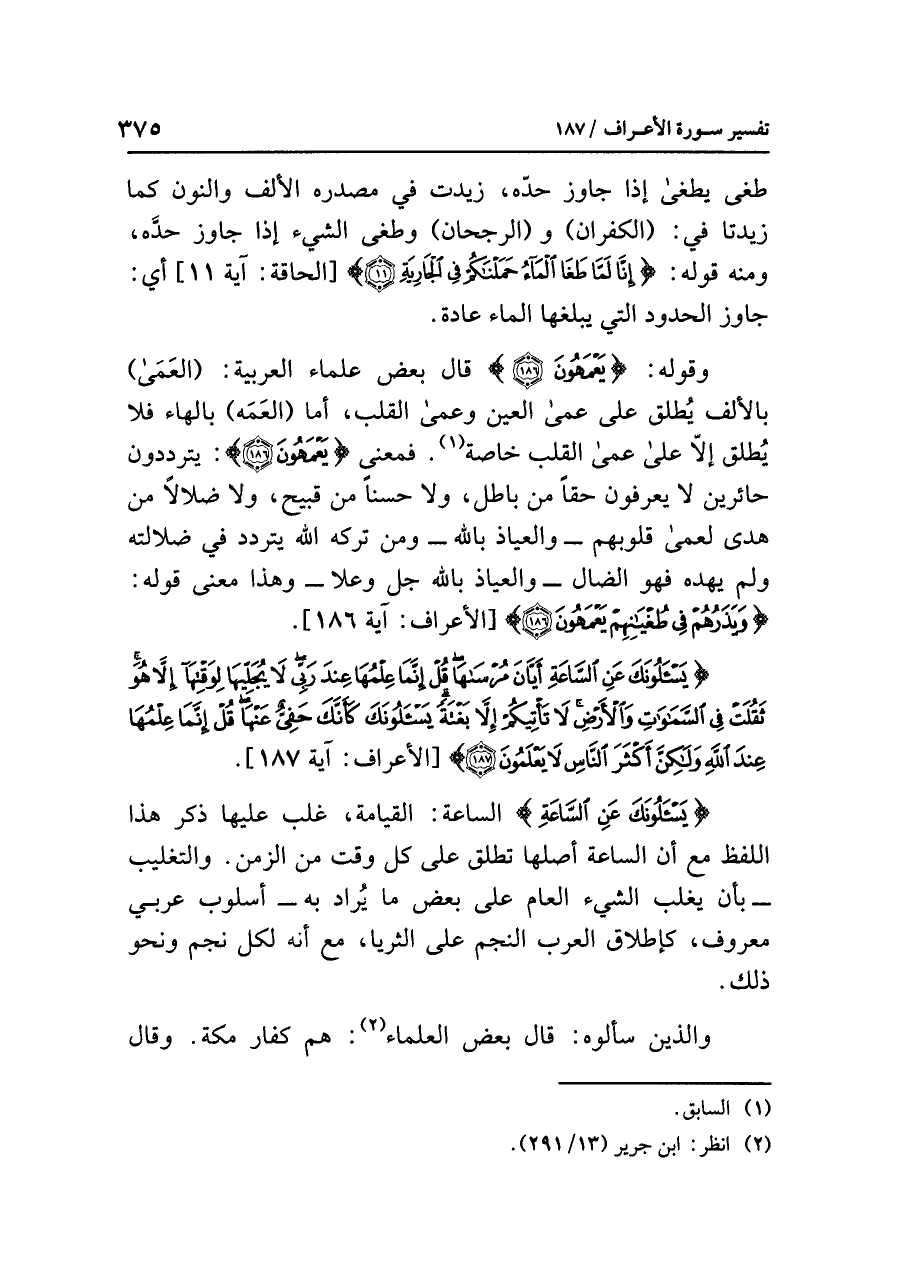 تفسير سورة الأعراف / ١٨٧ ٣٧٥
طغى يطغىٰ إذا جاوز حدّه، زيدت في مصدره الألف والنون كما
زيدتا في: (الكفران) و (الرجحان) وطغى الشيء إذا جاوز حدَّه،
ومنه قوله: ﴿إِنَّا لَمَّا طَغَا ٱلْمَآءُ حَمَلْنَٰكُمْ فِي ٱلْجَارِيَةِ ۝١١﴾ [الحاقة: آية ١١] أي:
جاوز الحدود التي يبلغها الماء عادة.
وقوله: ﴿يَعْمَهُونَ ۝١٨٦﴾ قال بعض علماء العربية: (العَمَىٰ)
بالألف يُطلق على عمىٰ العين وعمىٰ القلب، أما (العَمَه) بالهاء فلا
يُطلق إلاّ علىٰ عمىٰ القلب خاصة(١). فمعنى ﴿يَعْمَهُونَ ۝١٨٦﴾: يترددون
حائرين لا يعرفون حقاً من باطل، ولا حسناً من قبيح، ولا ضلالاً من
هدى لعمىٰ قلوبهم ــ والعياذ بالله ــ ومن تركه الله يتردد في ضلالته
ولم يهده فهو الضال ــ والعياذ بالله جل وعلا ــ وهذا معنى قوله:
﴿وَيَذَرُهُمْ فِي طُغْيَٰنِهِمْ يَعْمَهُونَ ۝١٨٦﴾ [الأعراف: آية ١٨٦].
﴿يَسْـَٔلُونَكَ عَنِ ٱلسَّاعَةِ أَيَّانَ مُرْسَىٰهَا ۖ قُلْ إِنَّمَا عِلْمُهَا عِندَ رَبِّي ۖ لَا يُجَلِّيهَا لِوَقْتِهَآ إِلَّا هُوَ ۚ
ثَقُلَتْ فِي ٱلسَّمَٰوَٰتِ وَٱلْأَرْضِ ۚ لَا تَأْتِيكُمْ إِلَّا بَغْتَةً ۗ يَسْـَٔلُونَكَ كَأَنَّكَ حَفِيٌّ عَنْهَا ۖ قُلْ إِنَّمَا عِلْمُهَا
عِندَ ٱللَّهِ وَلَٰكِنَّ أَكْثَرَ ٱلنَّاسِ لَا يَعْلَمُونَ ۝١٨٧﴾ [الأعراف: آية ١٨٧].
﴿يَسْـَٔلُونَكَ عَنِ ٱلسَّاعَةِ﴾ الساعة: القيامة، غلب عليها ذكر هذا
اللفظ مع أن الساعة أصلها تطلق على كل وقت من الزمن. والتغليب
ــ بأن يغلب الشيء العام على بعض ما يُراد به ــ أسلوب عربي
معروف، كإطلاق العرب النجم على الثريا، مع أنه لكل نجم ونحو
ذلك.
والذين سألوه: قال بعض العلماء(٢): هم كفار مكة. وقال
(١) السابق.
(٢) انظر: ابن جرير (١٣/ ٢٩١).